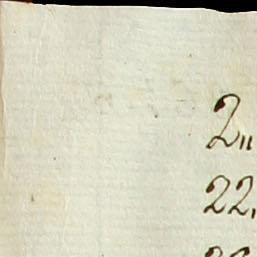 2"
22.